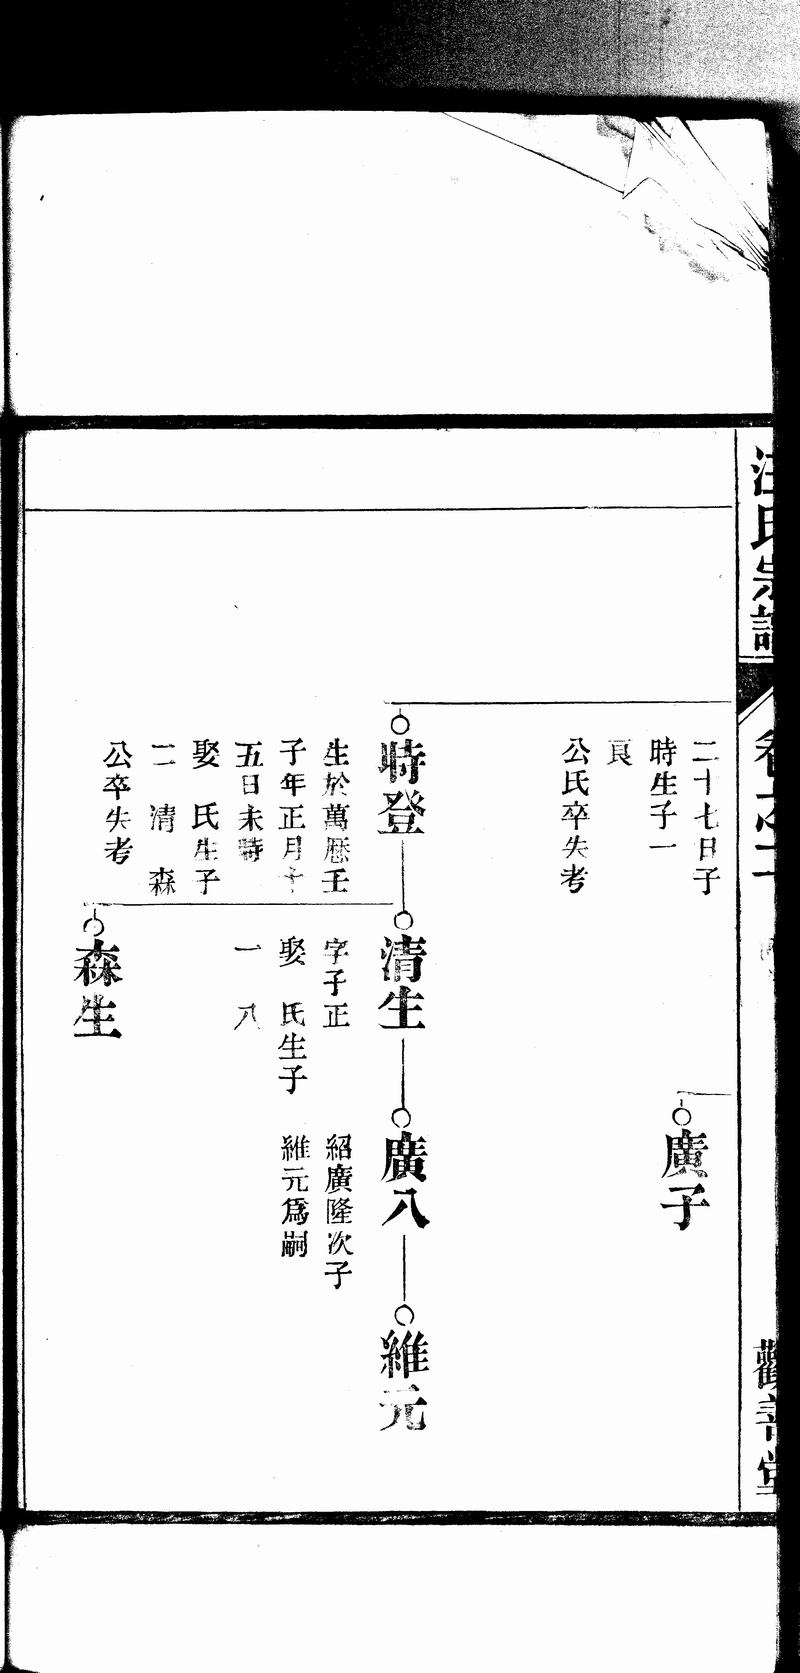 汪氏宗譜
卷之二
觀善堂
二十七日子
時生子一
良
公氏卒失考
廣子
時登
生於萬曆壬
子年正月十
五日未時
娶　氏生子
二　清　森
公卒失考
清生
字子正
娶　氏生子
一　八
廣八
紹廣隆次子
維元爲嗣
維元
森生